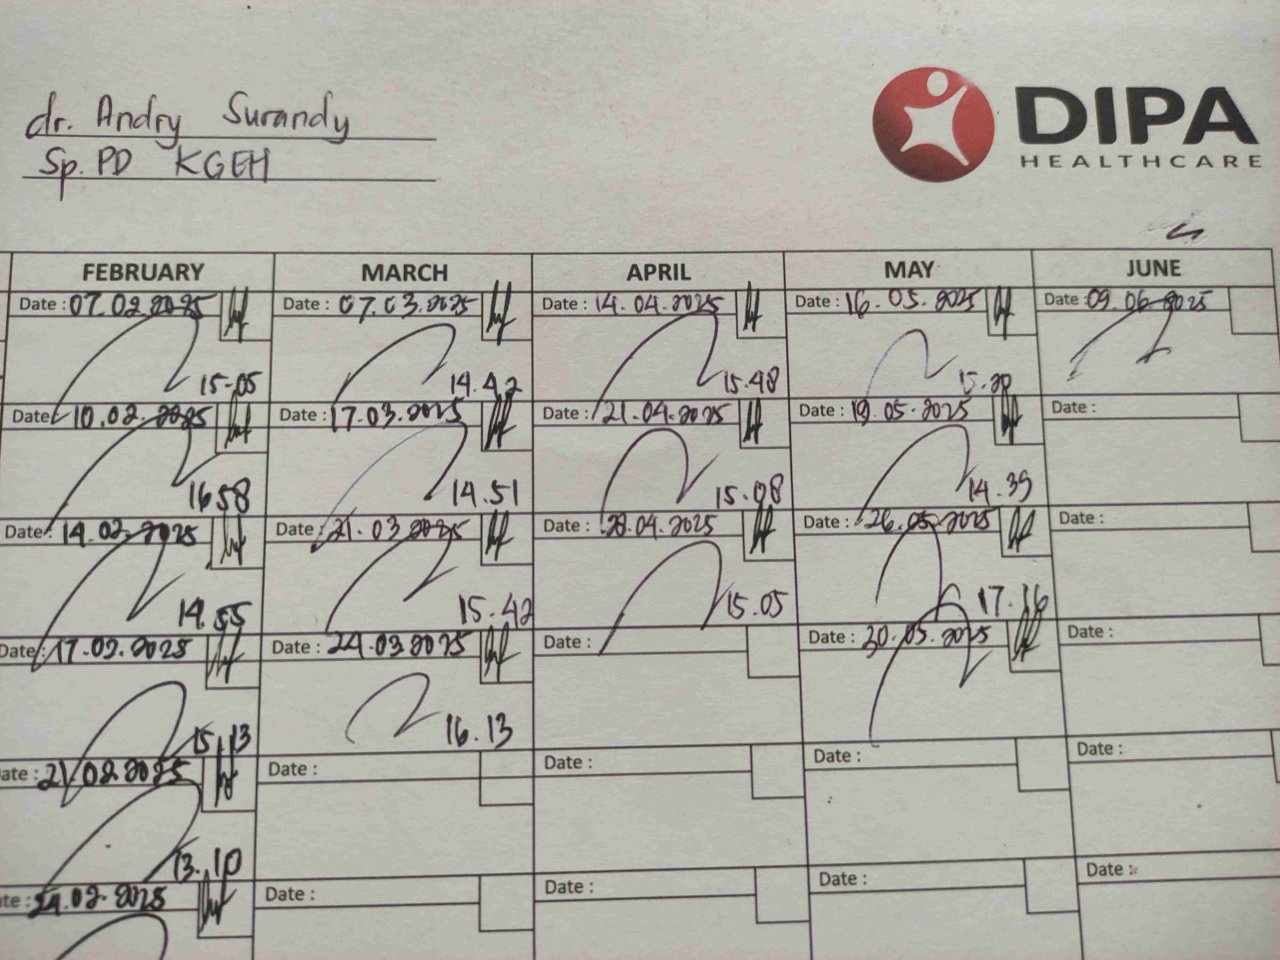 dr. Andry Surandy
Sp. PD KGEH
DIPA
HEALTHCARE
FEBRUARY MARCH APRIL MAY JUNE
Date : 07.02.2025 Date : 07.03.2025 Date : 14.04.2025 Date : 16.05.2025 Date : 09.06.2025
15-05 14.42 15.48 15.20
Date 10.02.2025 Date : 17.03.2025 Date : 21.04.2025 Date : 19.05.2025 Date :
16 58 14.51 15.08 14.39
Date : 14.02.2025 Date : 21.03.2025 Date : 28.04.2025 Date : 26.05.2025 Date :
14.55 15.42 15.05 17.16
Date : 17.02.2025 Date : 24.03.2025 Date : Date : 30.05.2025 Date :
15.13 16.13
ate : 21.02.2025 Date : Date : Date : Date :
13.10
te : 24.02.2025 Date : Date : Date : Date :